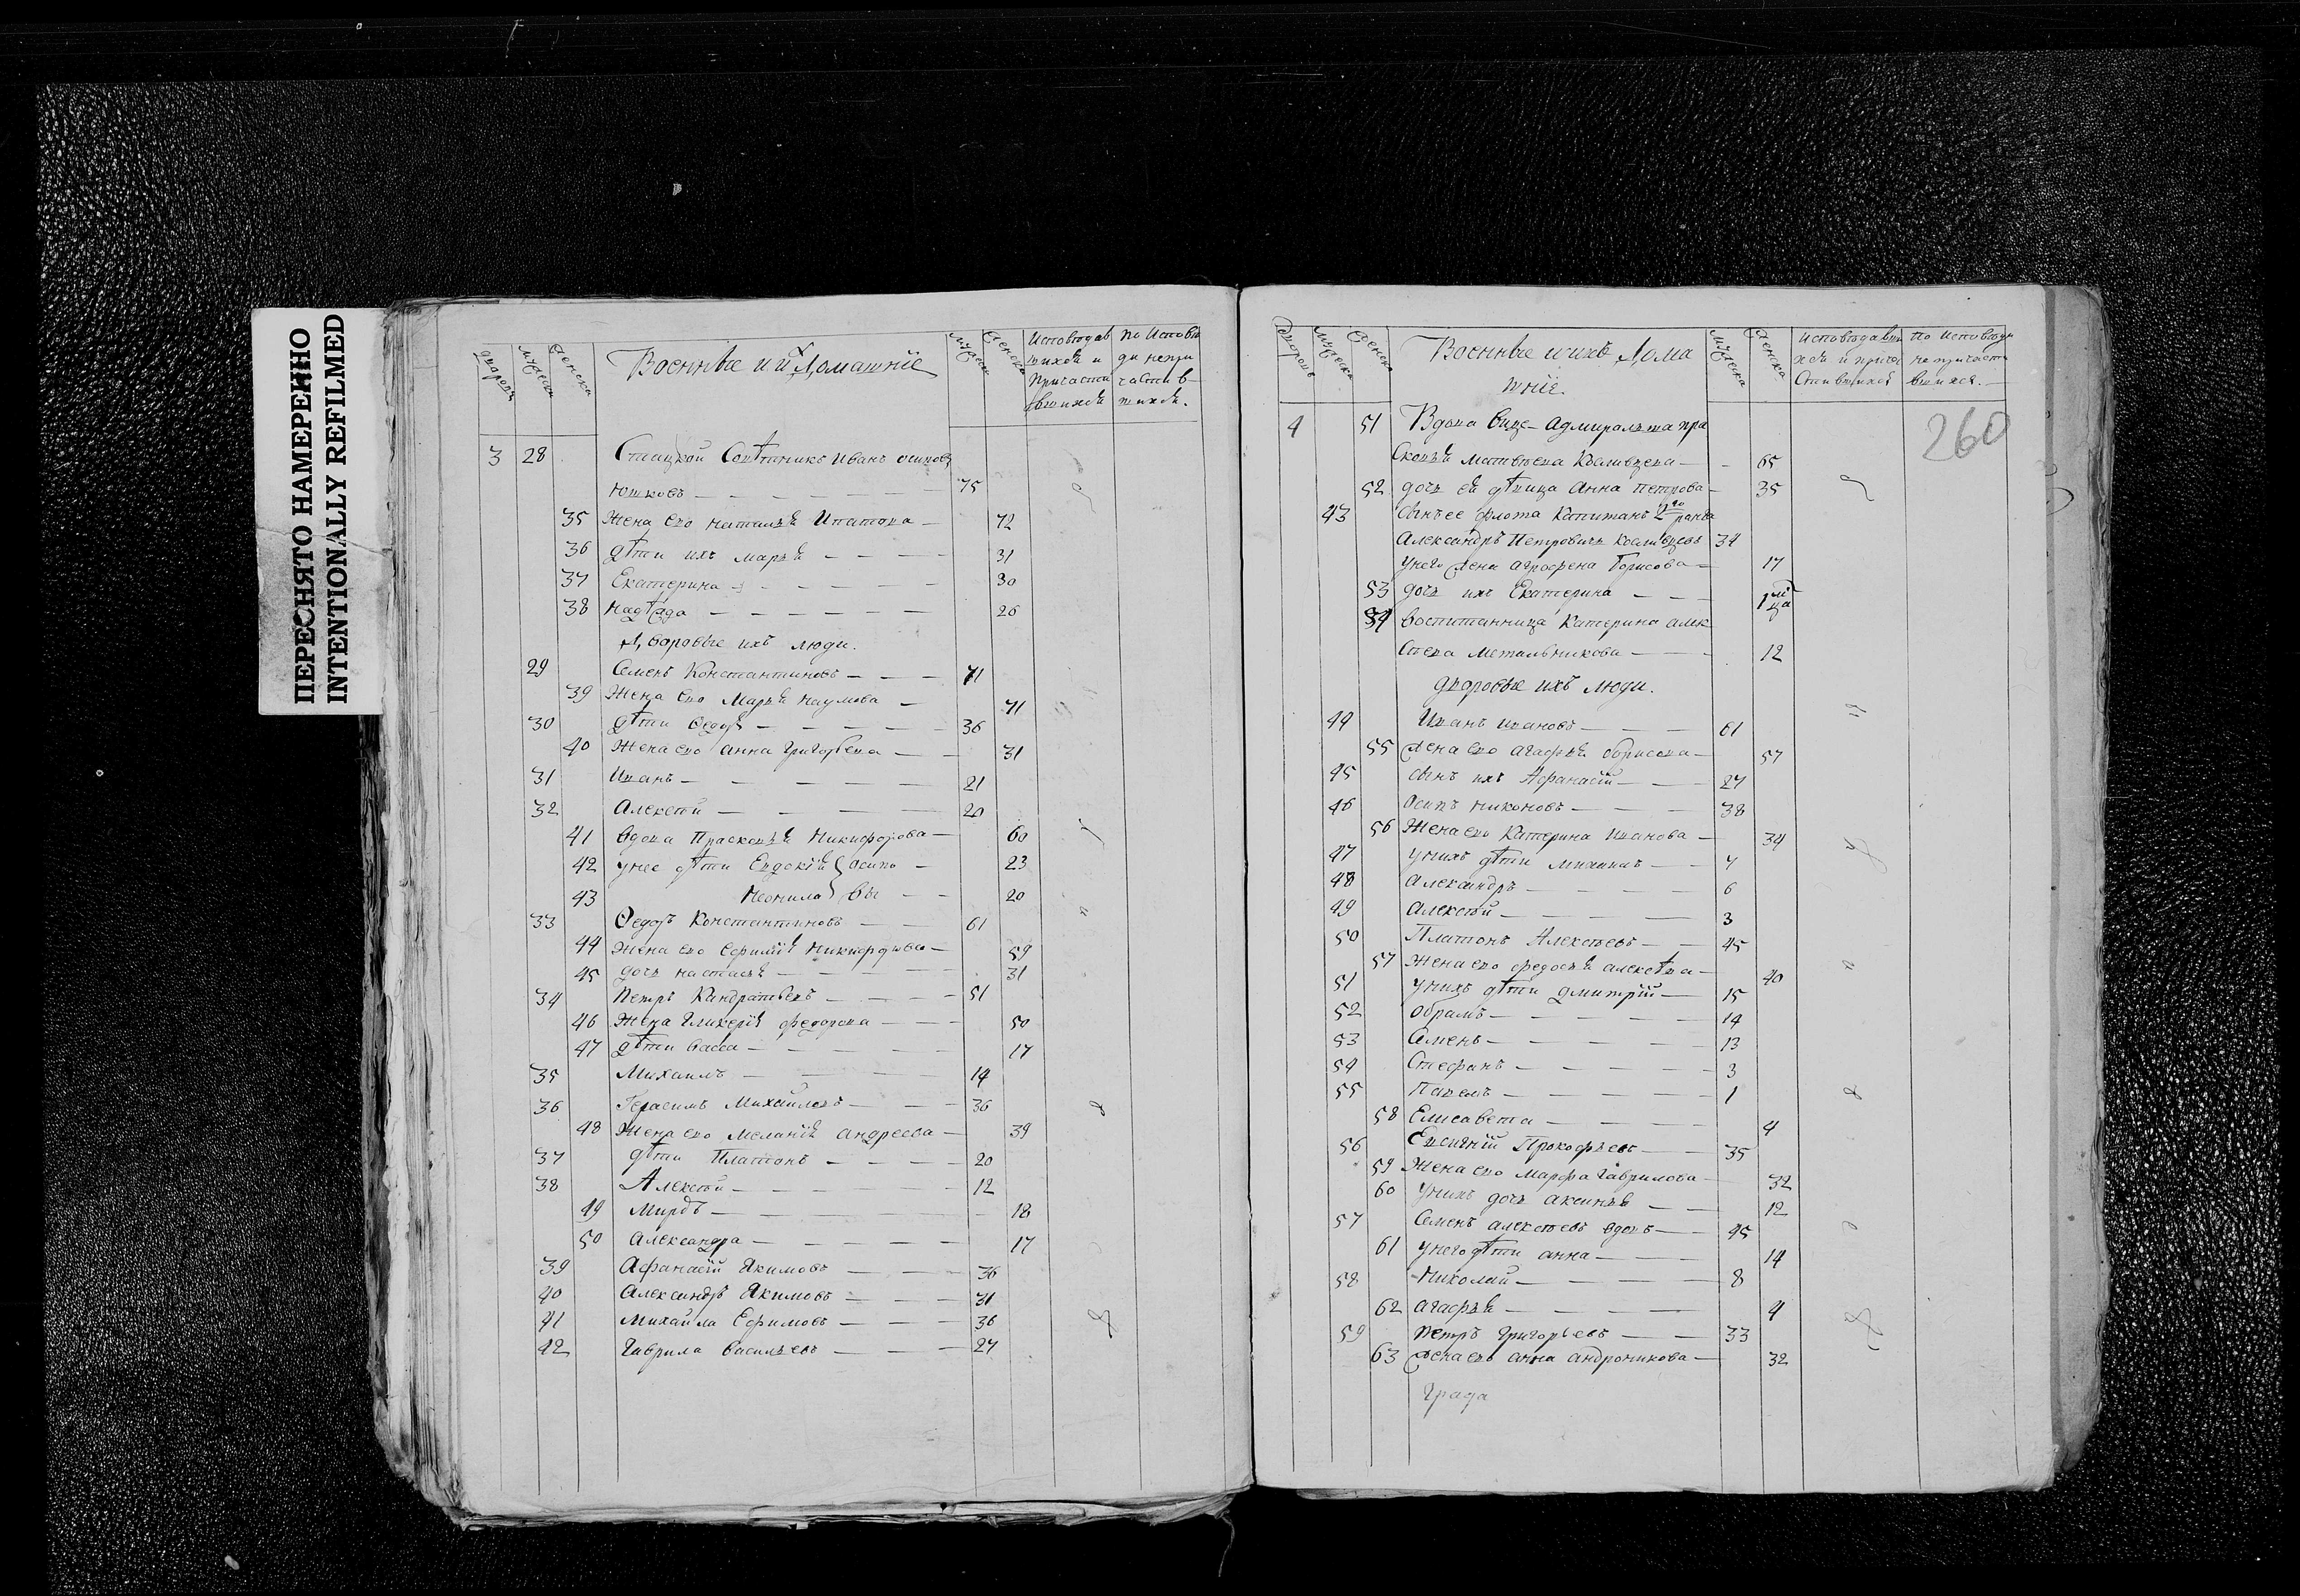 ПЕРЕСНЯТО НАМЕРЕННО
INTENTIONALLY REFILMED
дворовъ мужеска женска Военные и ихъ Домашнiе мужеска женска
Исповѣдав шихся и Причасти вшихся
По Исповѣ ди непри частив шихся.
3 28 Статской Совѣтникъ Иванъ осиповъ
Юшковъ — 75
35 Жена его наталья Ипатова — 72
36 дѣти ихъ марья — 31
37 Екатерина — 30
38 надѣжда — 26
Дворовые ихъ люди.
29 Семенъ Константиновъ — 71
39 Жена его Марья наумова — 71
30 дѣти Ѳедоръ — 36
40 Жена его анна григорьева — 31
31 Иванъ — 21
32 Алексѣй — 20
41 вдова Прасковья Никифорова — 60
42 унее дѣти Евдокiя осипо — 23
43 Неонила вы — 20
33 Ѳедоръ Константиновъ — 61
44 Жена его Ефимiя Никифорова — 59
45 дочь настасья — 31
34 Петръ Кандратьевъ — 51
46 Жена Гликерiя федорова — 50
47 дѣти васса — 17
35 Михаилъ — 14
36 Герасимъ Михайловъ — 36
48 Жена его меланiя андреева — 39
37 дѣти Платонъ — 20
38 Алексѣй — 12
49 — 18
50 александра — 17
39 Афанасiй Якимовъ — 36
40 Александръ Якимовъ — 31
41 Михайла Ефимовъ — 36
42 Гаврила васильевъ — 27
Дворовъ мужеска женска Военные и ихъ Дома
шнiе.
мужеска женска
исповѣдавши хся и прича стившихся
По Исповѣди не причасти вшихся.—
260
4 51 Вдова вице-адмиральша пра
сковья матвѣева — 65
52 дочь ея дѣвица Анна петрова — 35
43 сынъ ее флота Капитанъ 2го ранга
Александръ Петровичъ 34
унего жена аграфена борисова — 17
53 дочь ихъ Екатерина — 1 мца
54 воспитанница Катерина алек
сѣева метальникова — 12
дворовые ихъ люди.
44 Иванъ ивановъ — 61
55 жена его агафья борисова — 57
45 сынъ ихъ Афанасiй — 27
46 осипъ никоновъ — 38
56 Жена его Катерина иванова — 34
47 унихъ дѣти михаилъ — 7
48 александръ — 6
49 алексѣй — 3
50 Платонъ Алексѣевъ — 45
57 Жена его федосья алексѣева — 40
51 унихъ дѣти дмитрiй — 15
52 обрамъ — 14
53 Семенъ — 13
54 Стефанъ — 3
55 Павелъ — 1
58 Елисавета — 4
56 Евсигнiй Прокофьевъ — 35
59 Жена его марфа гаврилова — 32
60 унихъ дочь аксинья — 12
57 Семенъ алексѣевъ вдовъ — 45
61 унего дѣти анна — 14
58 Николай — 8
62 агафья — 4
59 петръ григорьевъ — 33
63 жена его анна андроникова — 32
Града